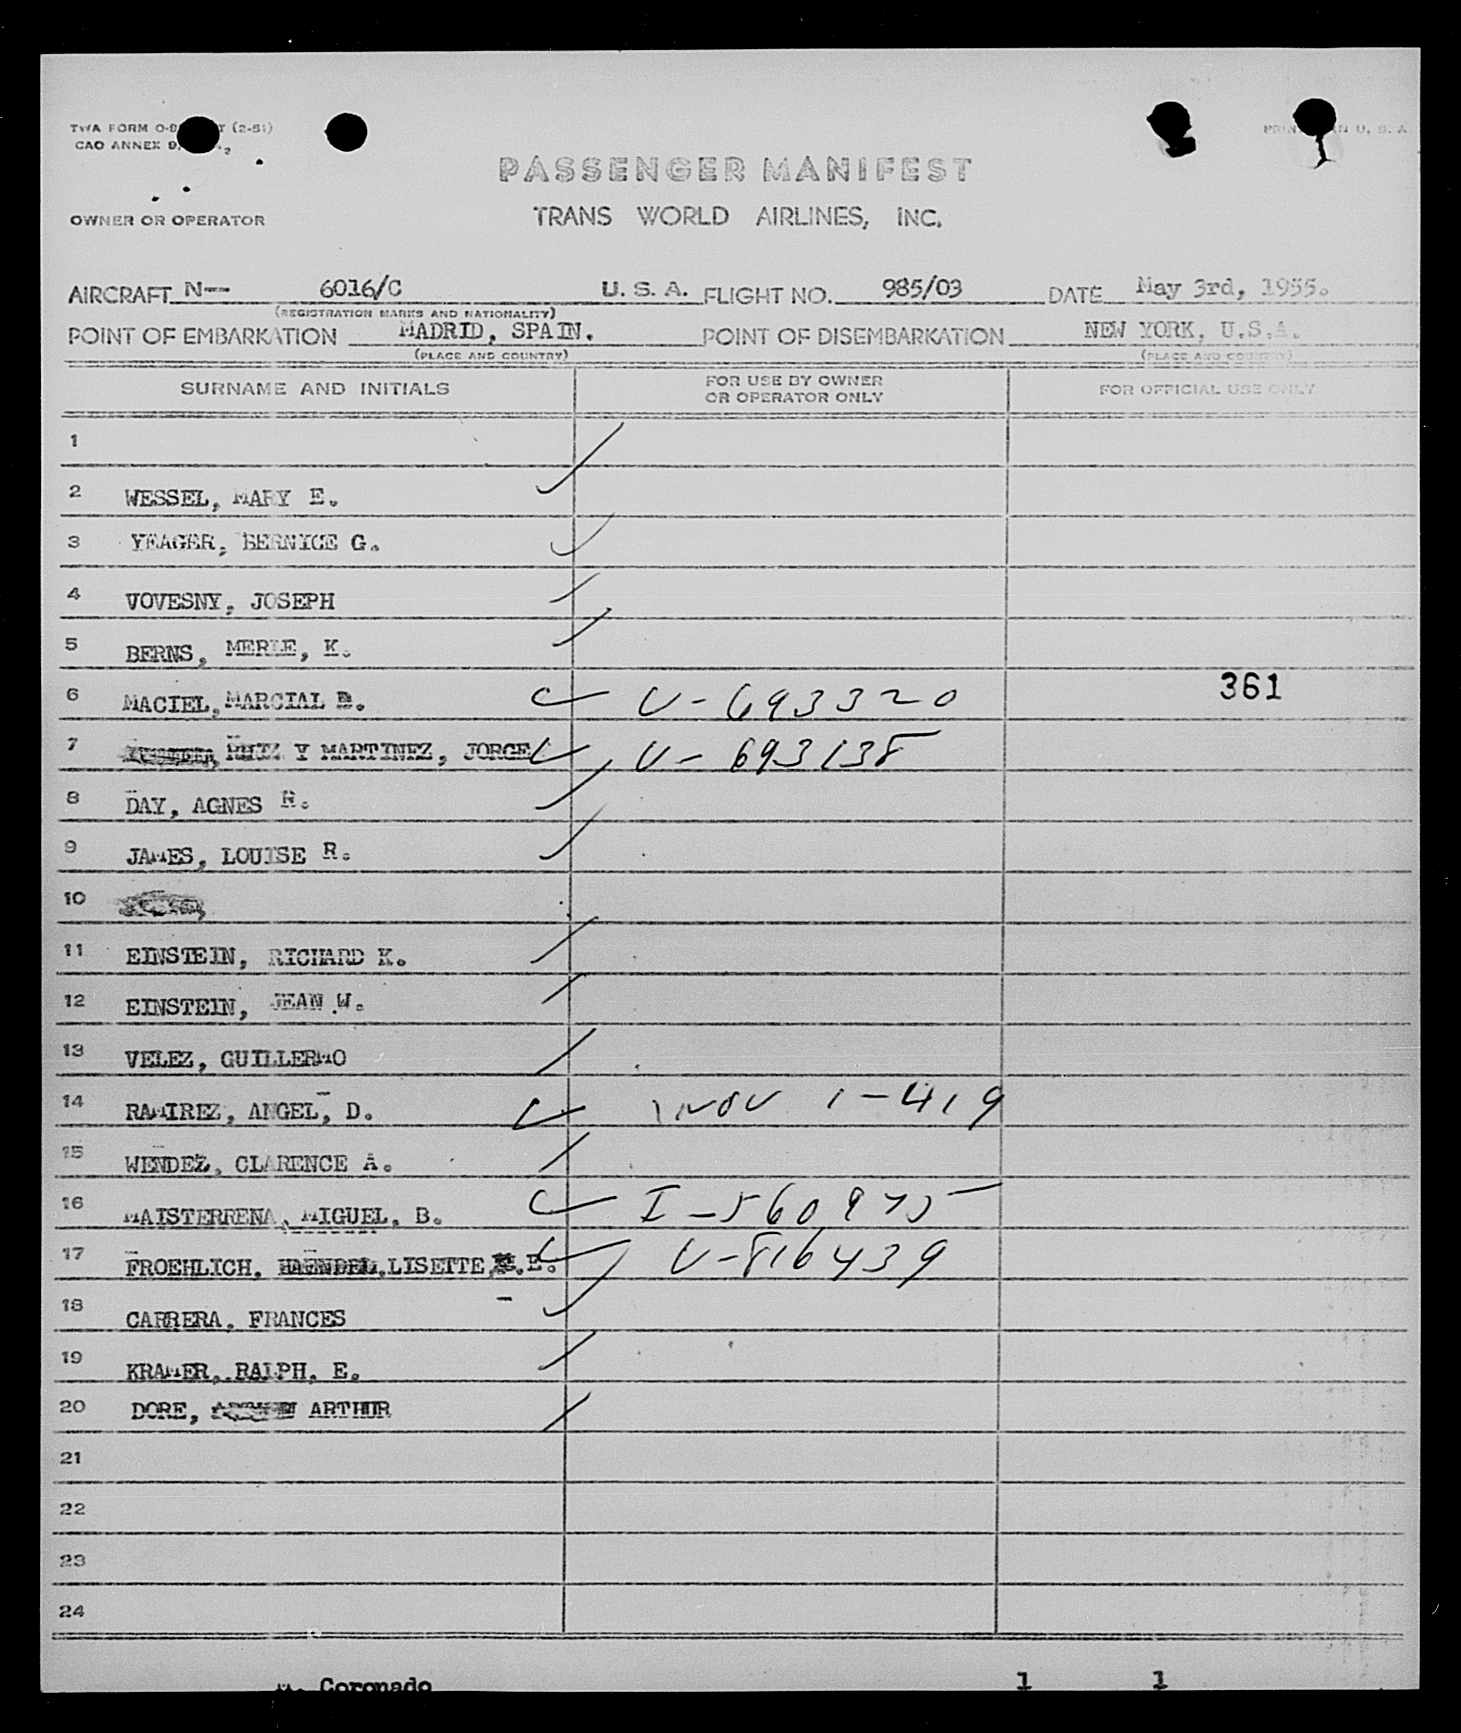 TWA FORM (2-51)
PRINTED IN U. S. A.
CAO ANNEX 9,
PASSENGER MANIFEST
OWNER OR OPERATOR
TRANS WORLD AIRLINES, INC.
AIRCRAFT N-- 6016/C U. S. A. FLIGHT NO. 985/03 DATE May 3rd, 1955.
(REGISTRATION MARKS AND NATIONALITY)
POINT OF EMBARKATION MADRID, SPAIN. POINT OF DISEMBARKATION NEW YORK, U.S.A.
(PLACE AND COUNTRY) (PLACE AND COUNTRY)
SURNAME AND INITIALS FOR USE BY OWNER OR OPERATOR ONLY FOR OFFICIAL USE ONLY
1
2 WESSEL, MARY E.
3 YEAGER, BERNICE G.
4 VOVESNY, JOSEPH
5 BERNS, MERLE, K.
6 MACIEL, MARCIAL D. V-693320 361
7 RUIZ Y MARTINEZ, JORGE V-693138
8 DAY, AGNES R.
9 JAMES, LOUISE R.
10
11 EINSTEIN, RICHARD K.
12 EINSTEIN, JEAN W.
13 VELEZ, GUILLERMO
14 RAMIREZ, ANGEL, D. 1-419
15 WENDEZ, CLARENCE A.
16 MAISTERRENA, MIGUEL, B. I-560975
17 FROEHLICH. LISETTE, E. V-816439
18 CARRERA. FRANCES
19 KRAMER, RALPH, E.
20 DORE, ARTHUR
21
22
23
24
Coronado 1 1